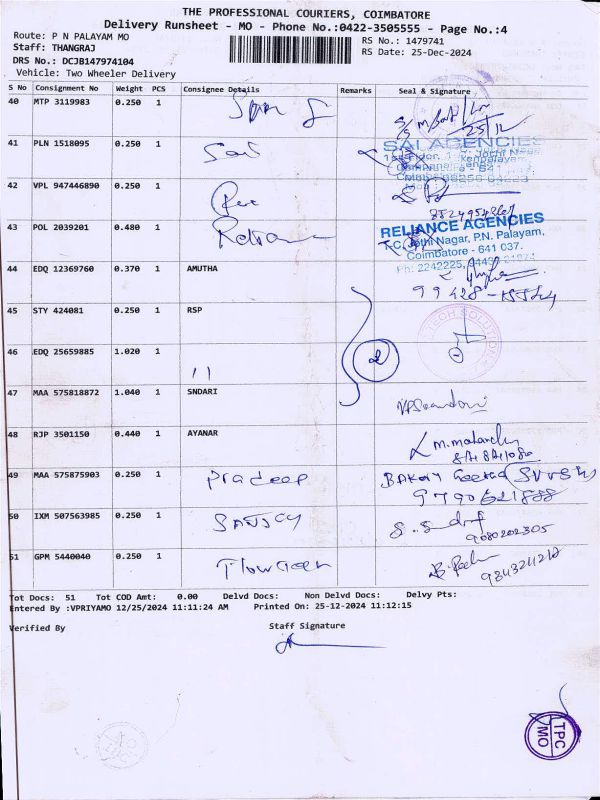 THE PROFESSIONAL COURIERS, COIMBATORE
Delivery Runsheet - MO - Phone No.:0422-3505555 - Page No.:4
Route: P N PALAYAM MO
Staff: THANGRAJ
DRS No.: DCJB147974104
Vehicle: Two Wheeler Delivery
RS No.: 1479741
RS Date: 25-Dec-2024
S No Consignment No Weight PCS Consignee Details Remarks Seal & Signature
40 MTP 3119983 0.250 1
25/12
41 PLN 1518095 0.250 1
SAI AGENCIES
42 VPL 947446890 0.250 1
43 POL 2039201 0.480 1
RELIANCE AGENCIES
T.C. Jothi Nagar, P.N. Palayam,
Coimbatore - 641 037.
Ph: 2242225,
44 EDQ 12369760 0.370 1 AMUTHA
45 STY 424081 0.250 1 RSP
TECH SOLUTIONS
46 EDQ 25659885 1.020 1 11
47 MAA 575818872 1.040 1 SNDARI
48 RJP 3501150 0.440 1 AYANAR
49 MAA 575875903 0.250 1 Pradeep
9790621888
50 IXM 507563985 0.250 1 SANJAY
9080202305
51 GPM 5440040 0.250 1
Tot Docs: 51 Tot COD Amt: 0.00 Delvd Docs: Non Delvd Docs: Delvy Pts:
Entered By :VPRIYAMO 12/25/2024 11:11:24 AM Printed On: 25-12-2024 11:12:15
Verified By Staff Signature
TPC
MO